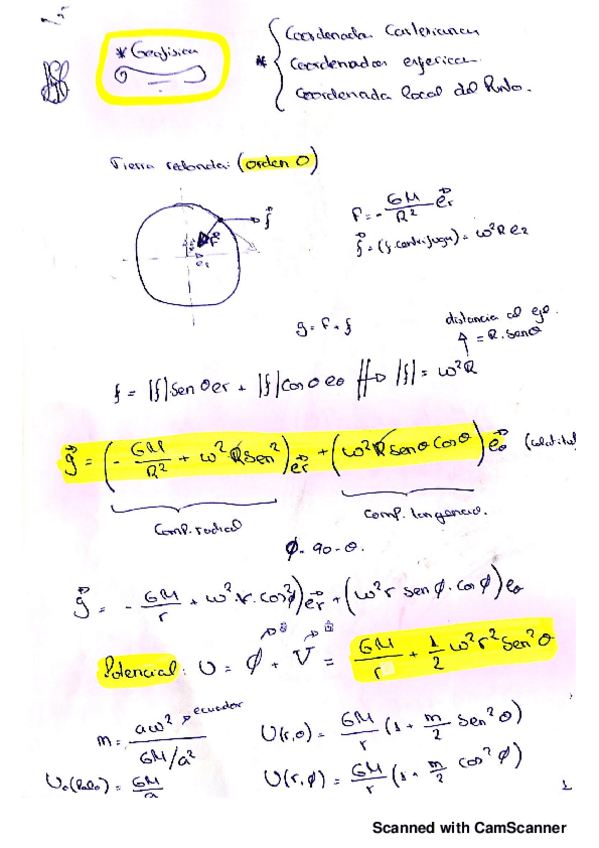 * Geofísica
Coordenadas Cartesianas
* Coordenadas esféricas
Coordenada local del Punto.
Tierra redonda: (orden 0)
F = - GM/R² e⃗r
f⃗ = (f. centrífuga) = ω²R e₂
f⃗
F⃗
g = F + f
distancia al eje.
= R. senθ
f = |f| sen θ er + |f| cos θ eθ ⇒ |f| = ω²R
g⃗ = (- GM/R² + ω² R sen²) e⃗r + (ω² R senθ Cosθ) e⃗θ (colatitud)
Comp. radial
Comp. tangencia.
ϕ = 90 - θ.
g⃗ = - GM/r + ω². r. cos²ϕ) e⃗r + (ω² r sen ϕ. cos ϕ) eθ
Potencial: U = ϕ + V = GM/r + 1/2 ω² r² sen² θ
m = aω² / GM/a² → ecuador
U(r,θ) = GM/r (1 + m/2 sen² θ)
U₀(Polo) = GM/a
U(r,ϕ) = GM/r (1 + m/2 cos² ϕ)
1
Scanned with CamScanner